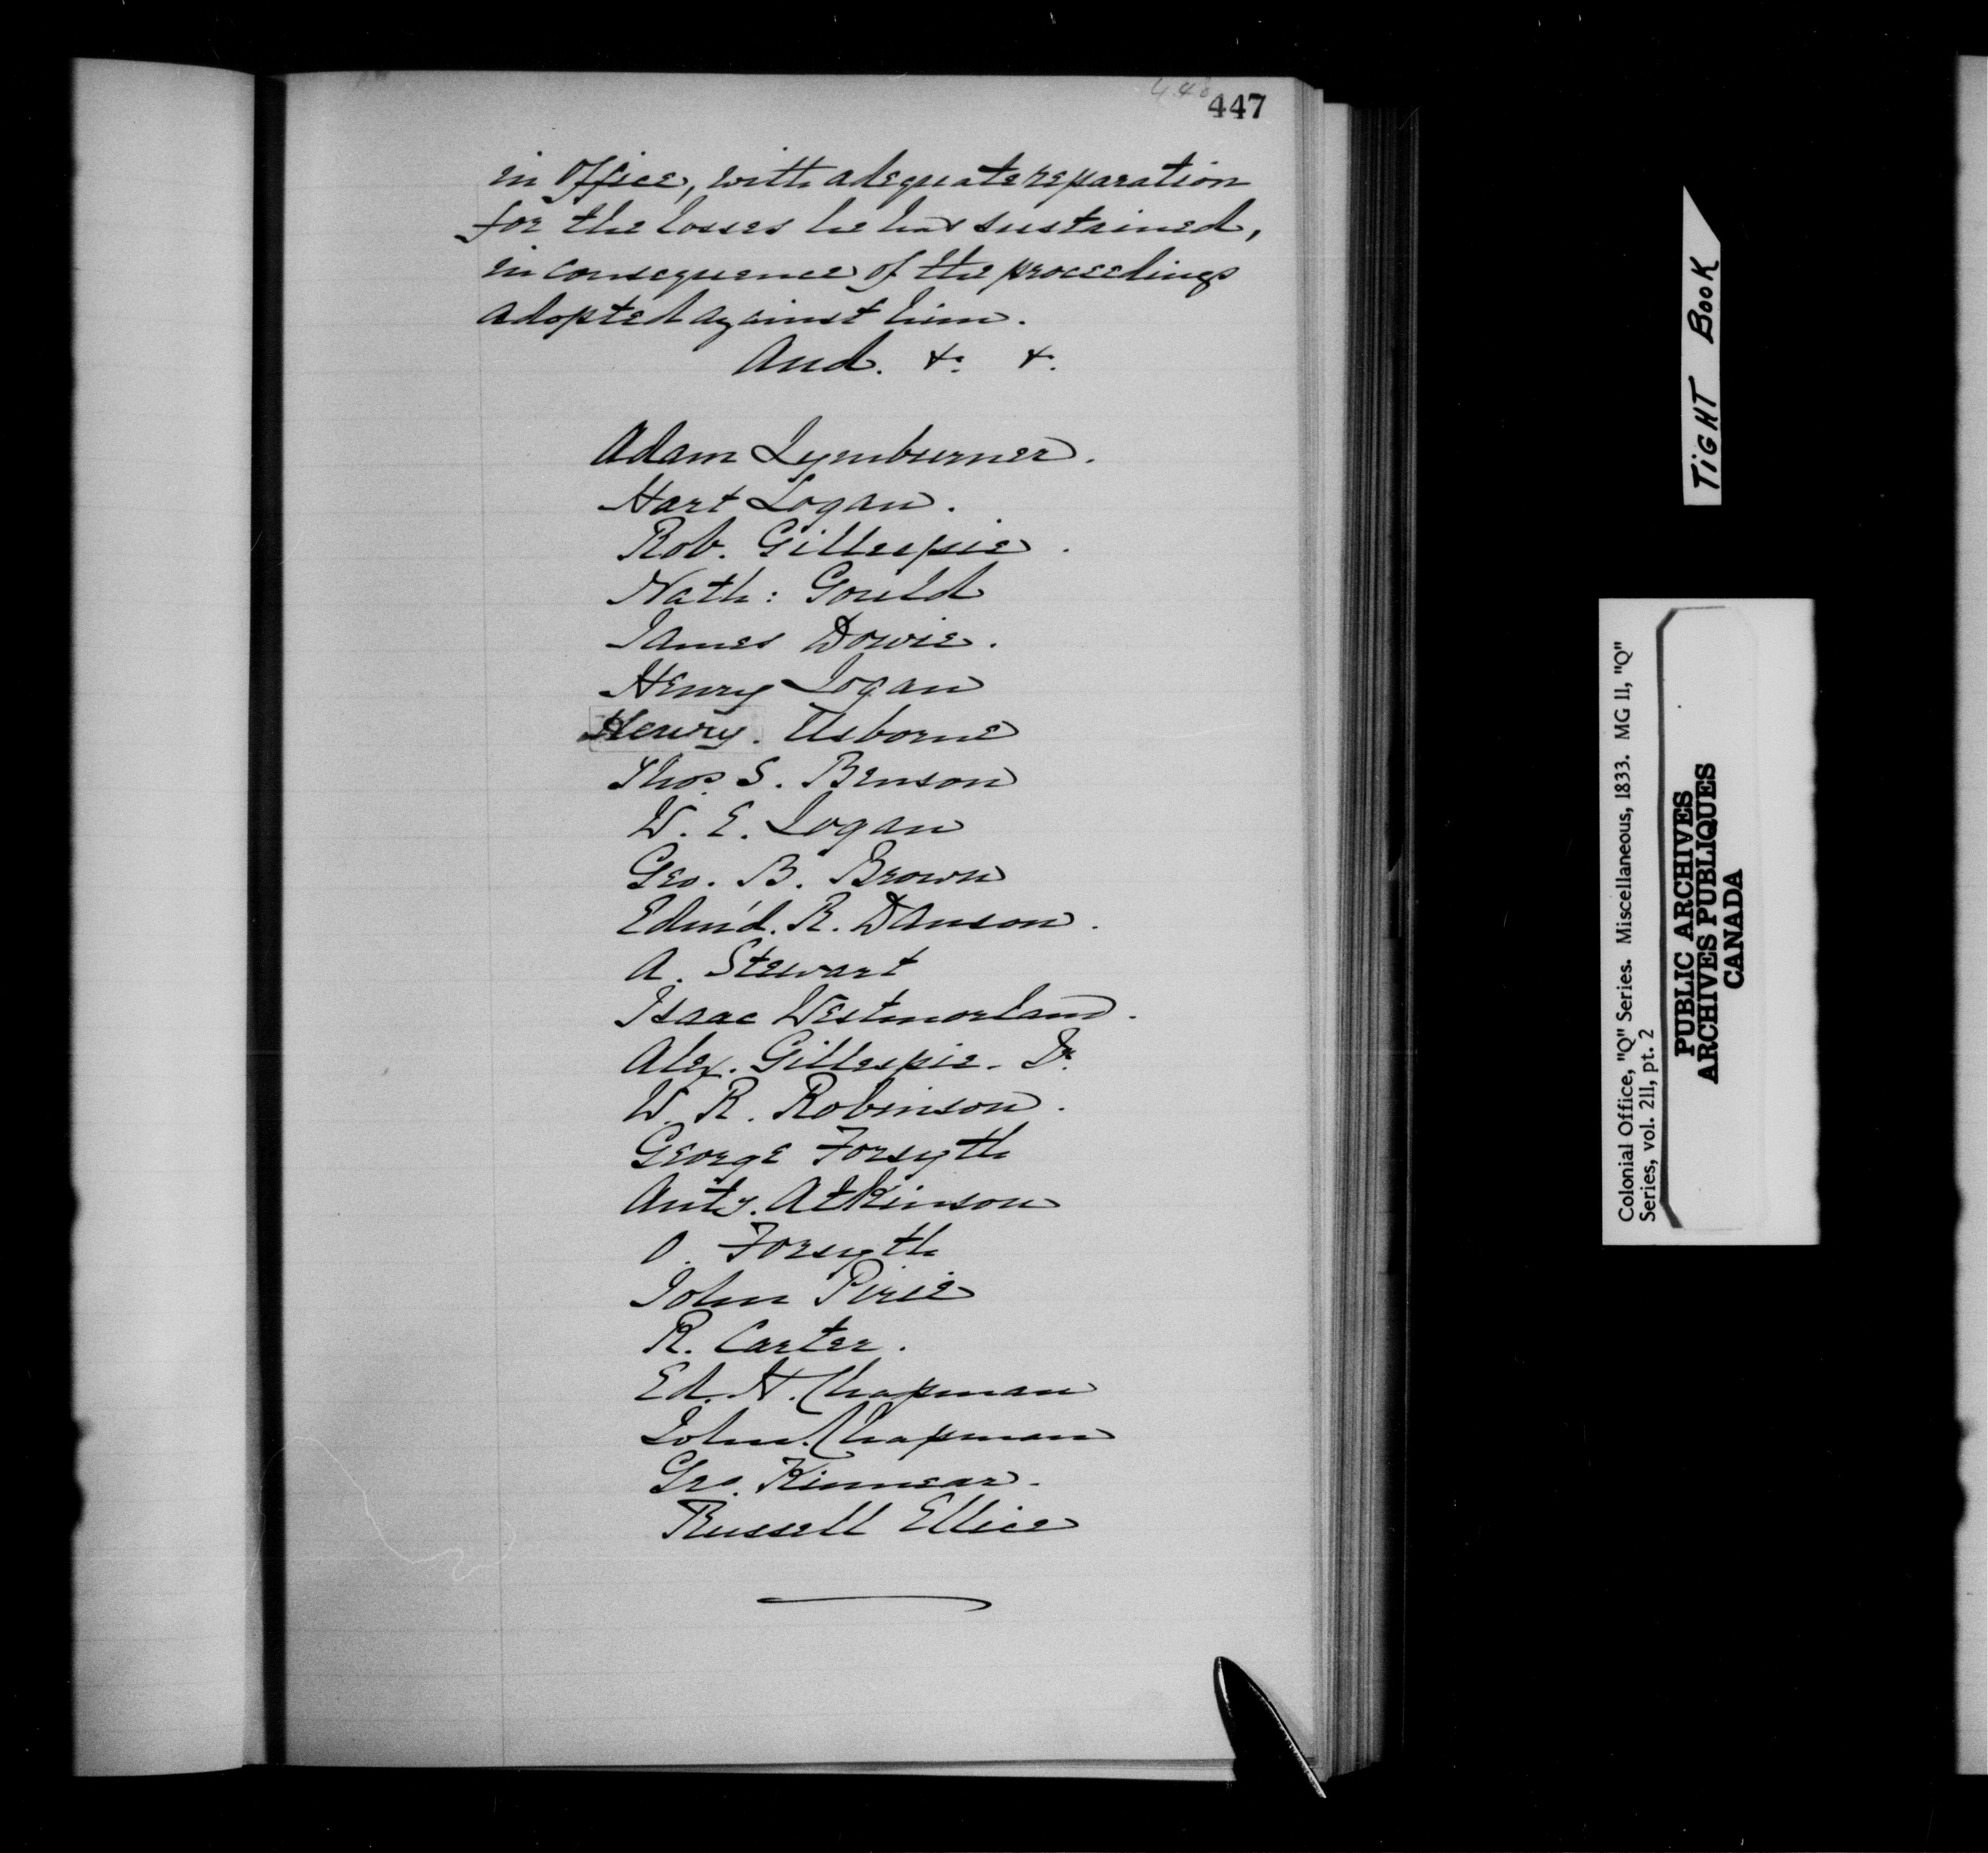 447
in office, with adequate reparation
for the losses he has sustained,
in consequence of the proceedings
adopted against him.
And. &c. &c.
Adam Lymburner.
Hart Logan.
Rob. Gillespie.
Nath: Gould
James Dowie.
Henry Logan
Henry. Usborne
Thos. S. Benson
W. E. Logan
Geo. B. Brown
Edm'd. R. Danson.
A. Stewart
Isaac Westmorland.
Alex. Gillespie. Jr.
W. R. Robinson.
George Forsyth
Anty. Atkinson
Forsyth
John Pirie
R. Carter.
Ed. H. Chapman
John. Chapman
Geo. Kinnear.
Russell Ellice
TIGHT BOOK
Colonial Office, "Q" Series. Miscellaneous, 1833. MG 11, "Q"
Series, vol. 211, pt. 2
PUBLIC ARCHIVES
ARCHIVES PUBLIQUES
CANADA